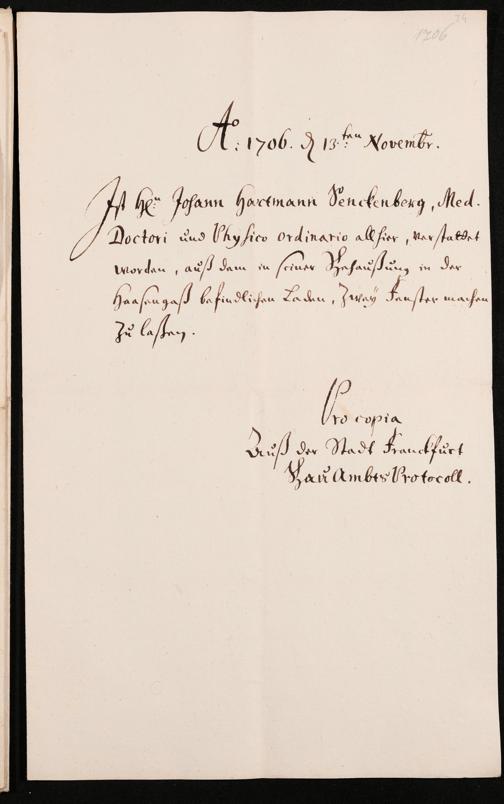 74
1706
Ao: 1706. d 13.ten Novembr.
Ist Hn. Johann Hartmann Senckenberg, Med.
Doctori und Physico ordinario allhier, verstattet
worden, auß dem in seiner Behaußung in der
Haasengaß befindlichen Laden, Zwey Fenster machen
Zu laßen.
Pro copia
Auß der Stadt Franckfurt
Bau Ambts Protocoll.